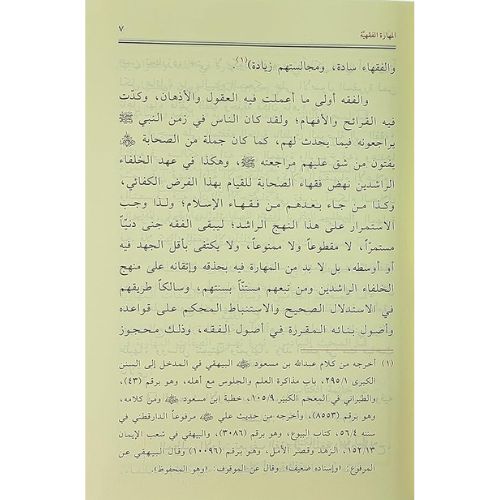 المهارة الفقهيّة ٧
والفقهاء سادة، ومجالستهم زيادة)(١)
والفقه أولى ما أعملت فيه العقول والأذهان، وكدّت
فيه القرائح والأفهام؛ ولقد كان الناس في زمن النبي ﷺ
يراجعونه فيما يحدث لهم، كما كان جملة من الصحابة
يفتون من شق عليهم مراجعته ﷺ، وهكذا في عهد الخلفاء
الراشدين نهض فقهاء الصحابة للقيام بهذا الفرض الكفائي،
وكذا من جاء بعدهم من فقهاء الإسلام؛ ولذا وجب
الاستمرار على هذا النهج الراشد؛ ليبقى الفقه جنى دنيّاً
مستمرّاً، لا مقطوعاً ولا ممنوعاً، ولا يكتفى بأقل الجهد فيه
أو أوسطه، بل لا بد من المهارة فيه بحذقه وإتقانه على منهج
الخلفاء الراشدين ومن تبعهم مستنّاً بسنتهم، وسالكاً طريقهم
في الاستدلال الصحيح والاستنباط المحكم على قواعده
وأصول بنائه المقررة في أصول الفقه، وذلك محجوز
(١) أخرجه من كلام عبدالله بن مسعود البيهقي في المدخل إلى السنن
الكبرى ٢٩٥/١، باب مذاكرة العلم والجلوس مع أهله، وهو برقم (٤٣)،
والطبراني في المعجم الكبير ١٠٥/٩، خطبة ابن مسعود ومن كلامه،
وهو برقم (٨٥٥٣)، وأخرجه من حديث علي مرفوعاً الدارقطني في
سننه ٥٦/٤، كتاب البيوع، وهو برقم (٣٠٨٦)، والبيهقي في شعب الإيمان
١٥٢/١٣، الزهد وقصر الأمل، وهو برقم (١٠٠٩٦) وقال البيهقي عن
المرفوع: (وإسناده ضعيف) وقال عن الموقوف: (وهو المحفوظ).